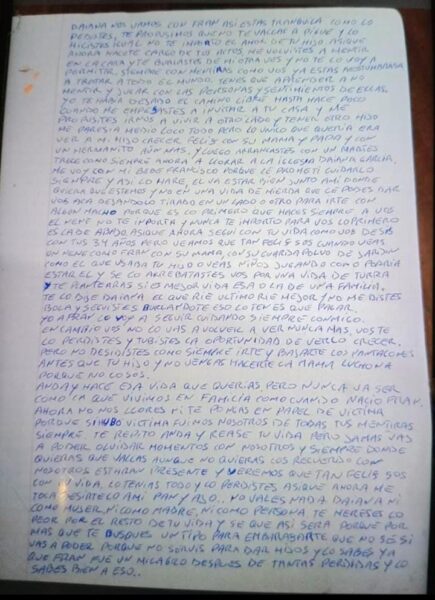 DAIANA NOS VAMOS CON FRAN ASI ESTAS TRANQUILA COMO LO
PEDISTES, TE PROPUSIMOS QUE NO TE VALLAS A PIQUE Y LO
HICISTES IGUAL NO TE IMPORTO EL AMOR DE TU HIJO ASIQUE
AHORA HACETE CARGO DE TUS ACTOS ME VOLVISTES A MENTIR
EN LA CARA Y TE BURLASTES DE MI OTRA VES Y NO TE LO VOY A
PERMITIR, SIEMPRE CON MENTIRAS COMO VOS YA ESTAS ACOSTUMBRADA
A TRATAR A TODO EL MUNDO, TENES QUE APRENDER A NO
MENTIR Y JUGAR CON LAS PERSONAS Y SENTIMIENTOS DE ELLAS,
YO TE HABIA DEJADO EL CAMINO LIBRE HASTA HACE POCO
CUANDO ME EMPESASTES A INVITAR A TU CASA Y ME
PROPUSISTES IRNOS A VIVIR A OTRO LADO Y TENER OTRO HIJO
ME PARESIA MEDIO LOCO TODO PERO LO UNICO QUE QUERIA ERA
VER A MI HIJO CRECER FELIS CON SU MAMA Y PAPA Y CON
UN HERMANITO AUN MAS, Y LUEGO ARRANCASTES CON UN
COMO SIEMPRE AHORA A LLORAR A LA IGLESIA DAIANA GARCIA.
ME VOY CON MI BEBE FRANCISCO PORQUE LE PROMETI CUIDARLO
SIEMPRE Y ASI LO HARE, EL VA ESTAR BIEN JUNTO AMI DONDE
QUIERA QUE ESTEMOS Y NO EN UNA VIDA DE MIERDA QUE LE PODES DAR
VOS ACA DEJANDOLO TIRADO EN UN LADO O OTRO PARA IRTE CON
ALGUN MACHO PORQUE ES LO PRIMERO QUE HACES SIEMPRE A VOS
EL NENE NO TE IMPORTA Y NUNCA TE IMPORTO PARA VOS LO PRIMERO
ES LA DE ABAJO ASIQUE AHORA SEGUI CON TU VIDA COMO VOS DESIS
CON TUS 34 AÑOS PERO VEAMOS QUE TAN FELIS SOS CUANDO VEAS
UN NENE COMO FRAN CON SU MAMA, CON SU GUARDAPOLVO DE JARDIN
COMO EL QUE USABA TU HIJO O VEAS NIÑOS JUGANDO COMO PODRIA
ESTAR EL Y SE LO ARREBATASTES VOS POR UNA VIDA DE TURRA
Y TE PLANTEARAS SI ES MEJOR VIDA ESA O LA DE UNA FAMILIA.
TE LO DIJE DAIANA EL QUE RIE ULTIMO RIE MEJOR Y NO ME DISTES
BOLA Y SEGUISTES BURLANDOTE ESO LO TENES QUE PAGAR.
YO A FRAN LO VOY A SEGUIR CUIDANDO SIEMPRE CONMIGO
EN CAMBIO VOS NO LO VAS A VOLVER A VER NUNCA MAS, VOS TE
LO PERDISTES Y TUBISTES LA OPORTUNIDAD DE VERLO CRECER.
PERO NO DESIDISTES COMO SIEMPRE IRTE Y BAJARTE LOS PANTALONES
ANTES QUE TU HIJO Y NO VENGAS HACERTE LA MAMA LUCHONA
PORQUE NO LO SOS.
ANDA Y HACE ESA VIDA QUE QUERIAS PERO NUNCA VA SER
COMO LA QUE VIVIMOS EN FAMILIA COMO CUANDO NACIO FRAN.
AHORA NO NOS LLORES NI TE PONGAS EN PAPEL DE VICTIMA
PORQUE SI HUBO VICTIMA FUIMOS NOSOTROS DE TODAS TUS MENTIRAS
SIEMPRE. TE REPITO ANDA Y REASE TU VIDA PERO JAMAS VAS
A PODER OLVIDAR MOMENTOS CON NOSOTROS Y SIEMPRE DONDE
QUIERAS QUE VALLAS AUNQUE NO QUIERAS LOS RECUERDO CON
NOSOTROS ESTARAN PRESENTE Y VEREMOS QUE TAN FELIS SOS
CON TU VIDA. LO TENIAS TODO Y LO PERDISTES ASIQUE AHORA ME
TOCA DESIRTELO AMI PAN Y AJO.. NO VALES NADA DAIANA NI
COMO MUJER, NI COMO MADRE, NI COMO PERSONA TE MERESES LO
PEOR POR EL RESTO DE TU VIDA Y SE QUE ASI SERA PORQUE POR
MAS QUE TE BUSQUES UN TIPO PARA EMBARAZARTE QUE NO SE SI
VAS A PODER PORQUE NO SERVIS PARA DAR HIJOS Y LO SABES YA
QUE FRAN FUE UN MILAGRO DESPUES DE TANTAS PERDIDAS Y LO
SABES BIEN A ESO..